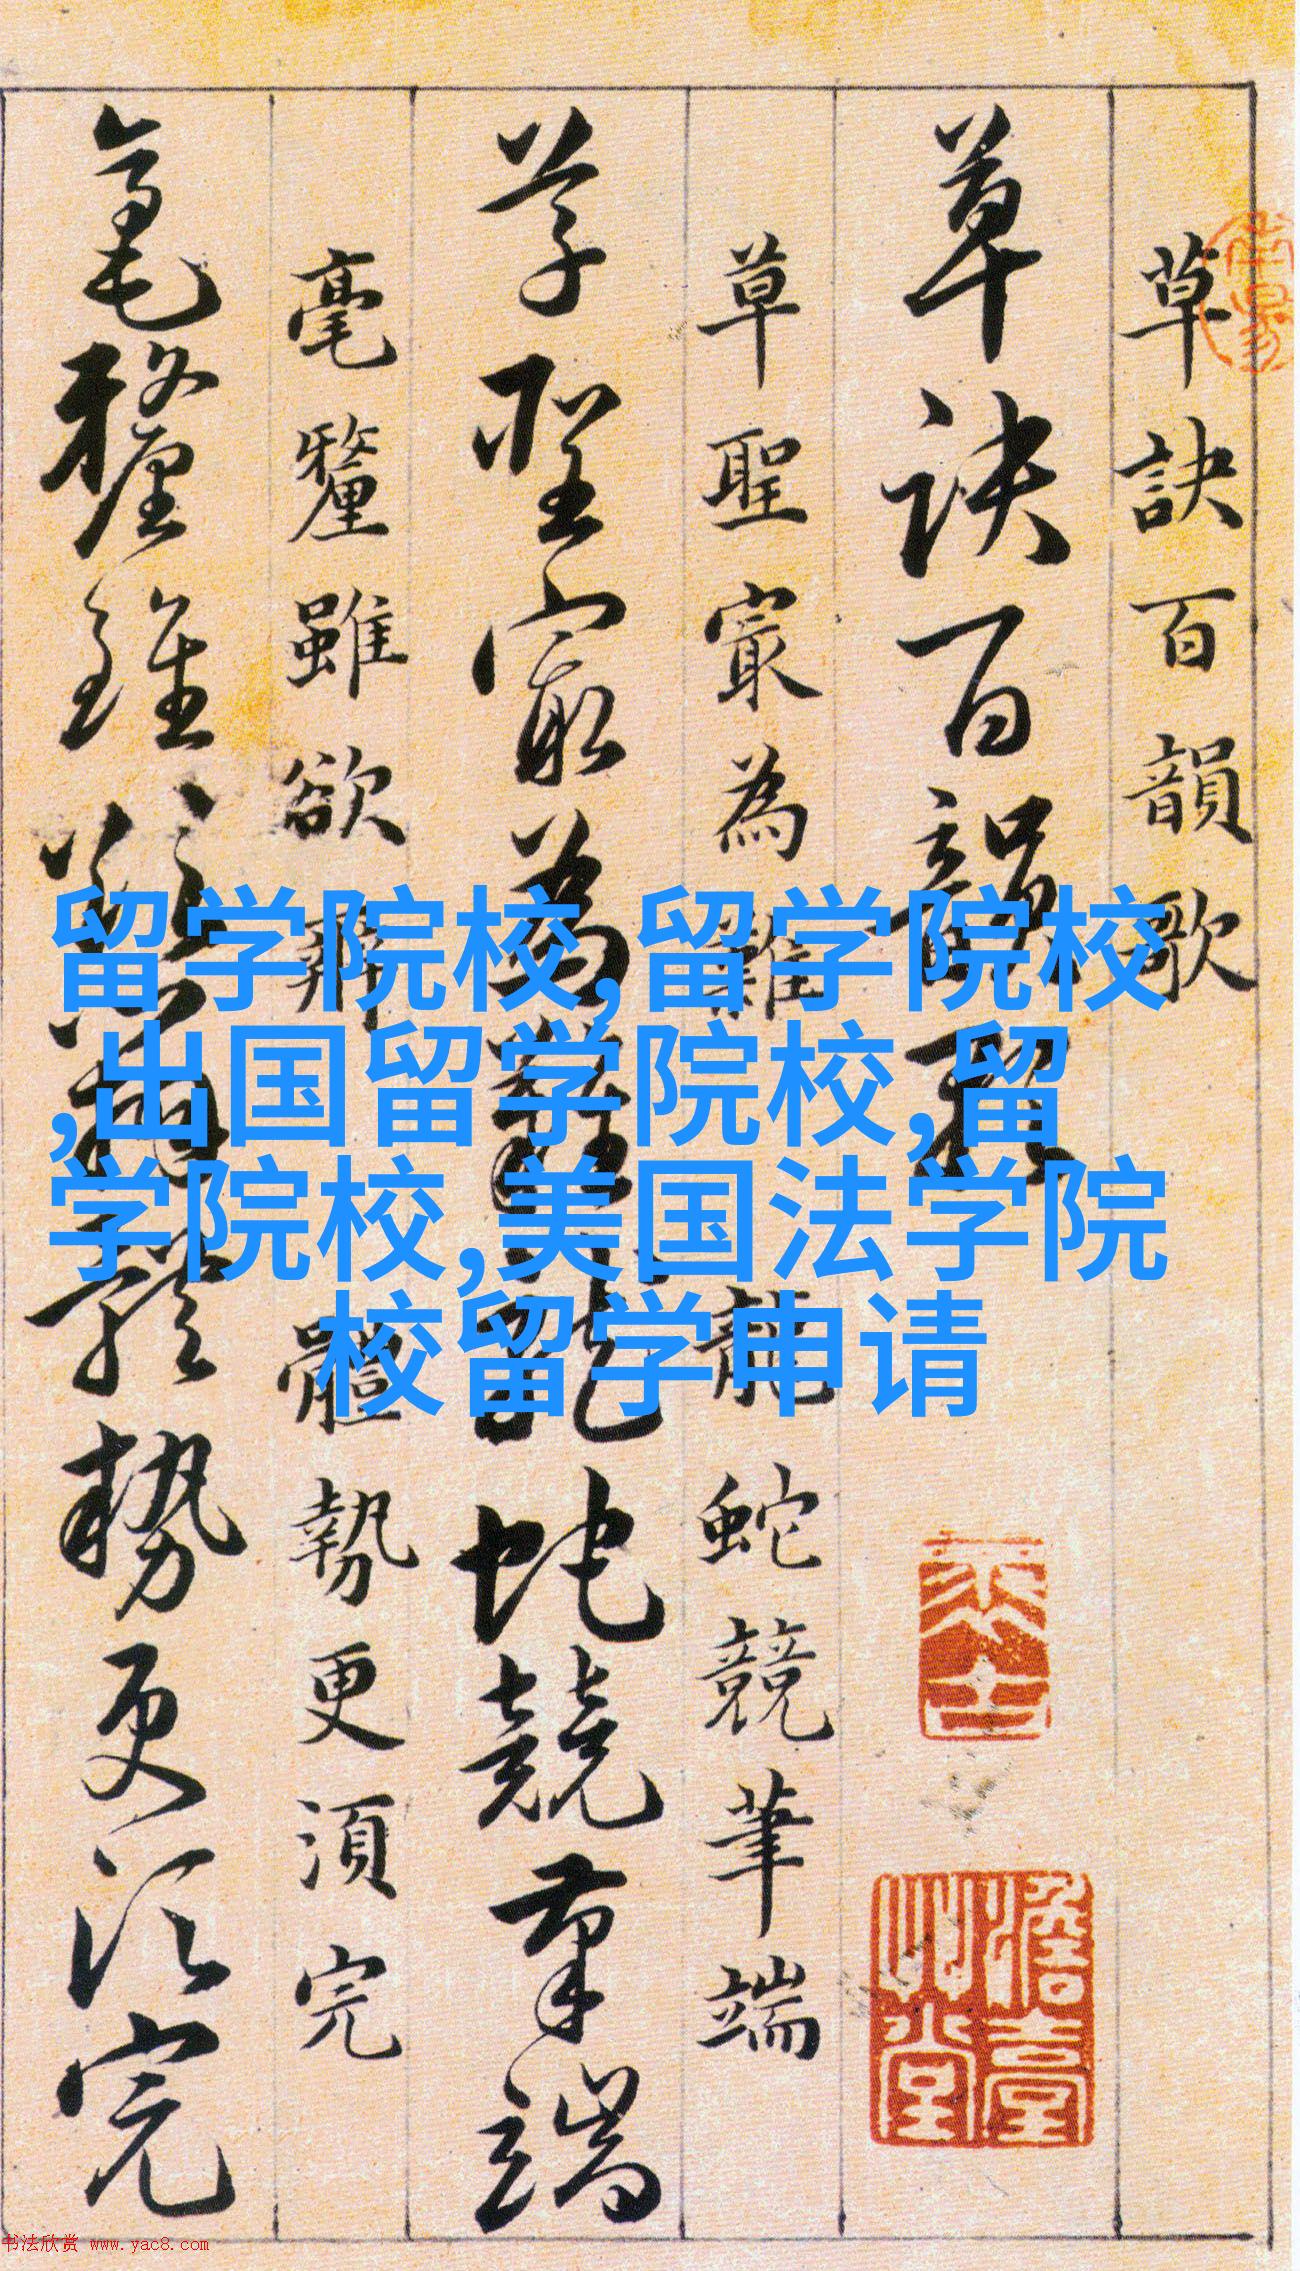 草訣百韻歌
草訣百韻歌
草聖㝡為難龍蛇競筆端
草聖㝡為難龍蛇競筆端
毫釐雖欲辨體勢更須完
毫釐雖欲辨體勢更須完
留学院校,留学院校
,出国留学院校,留
学院校,美国法学院
校留学申请
书法欣赏 www.yac8.com